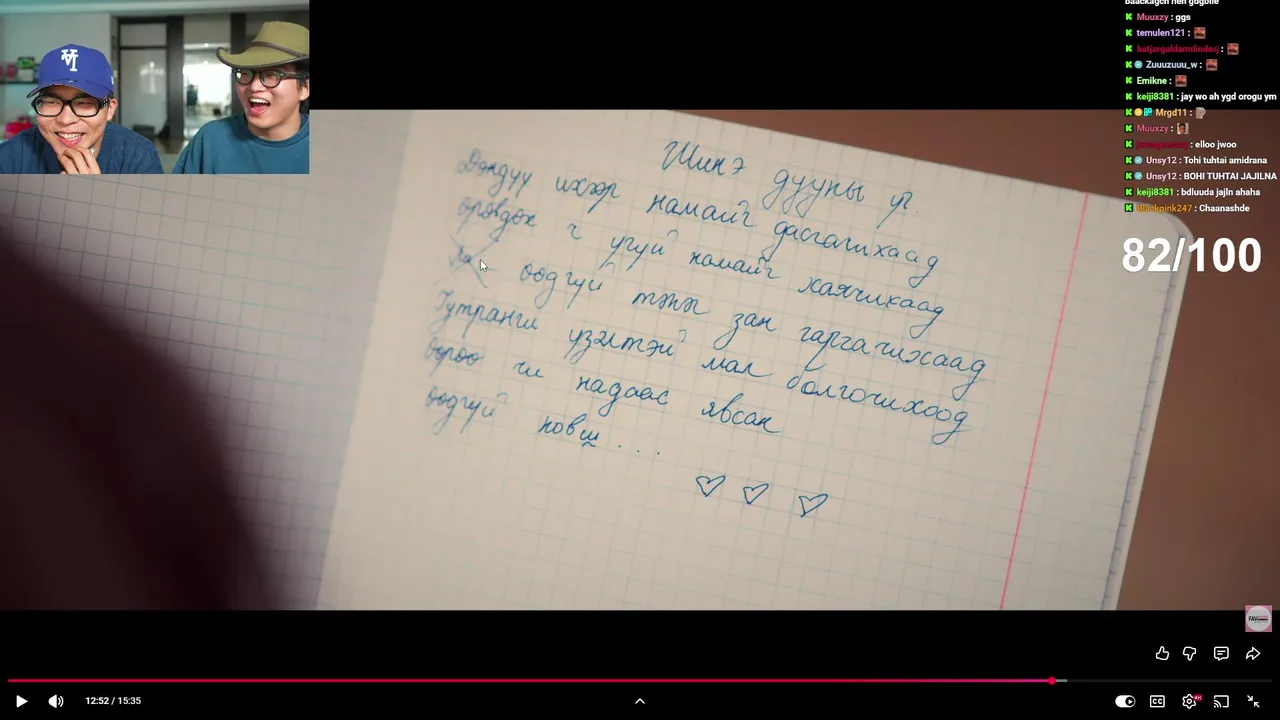 baackagch neh gogblie
Muuxzy : ggs
temulen121 :
batjargaldamdindorj :
Zuuuzuuu_w :
Emikne :
keiji8381 : jay wo ah ygd orogu ym
Mrgd11 :
Muuxzy :
: elloo jwoo
Unsy12 : Tohi tuhtai amidrana
Unsy12 : BOHI TUHTAI JAJILNA
keiji8381 : bdluuda jajln ahaha
Blackpink247 : Chaanashde
82/100
Шинэ дууны үг.
Дэндүү ихээр намайг дасгачихаад
өрөвдөх ч үгүй намайг хаячихаад
өөдгүй тэнэг зан гаргачихаад
Гутранги үзэлтэй мал болгочихоод
Өөрөө чи надаас явсан
өөдгүй новш ...
12:52 / 15:35
CC
4K